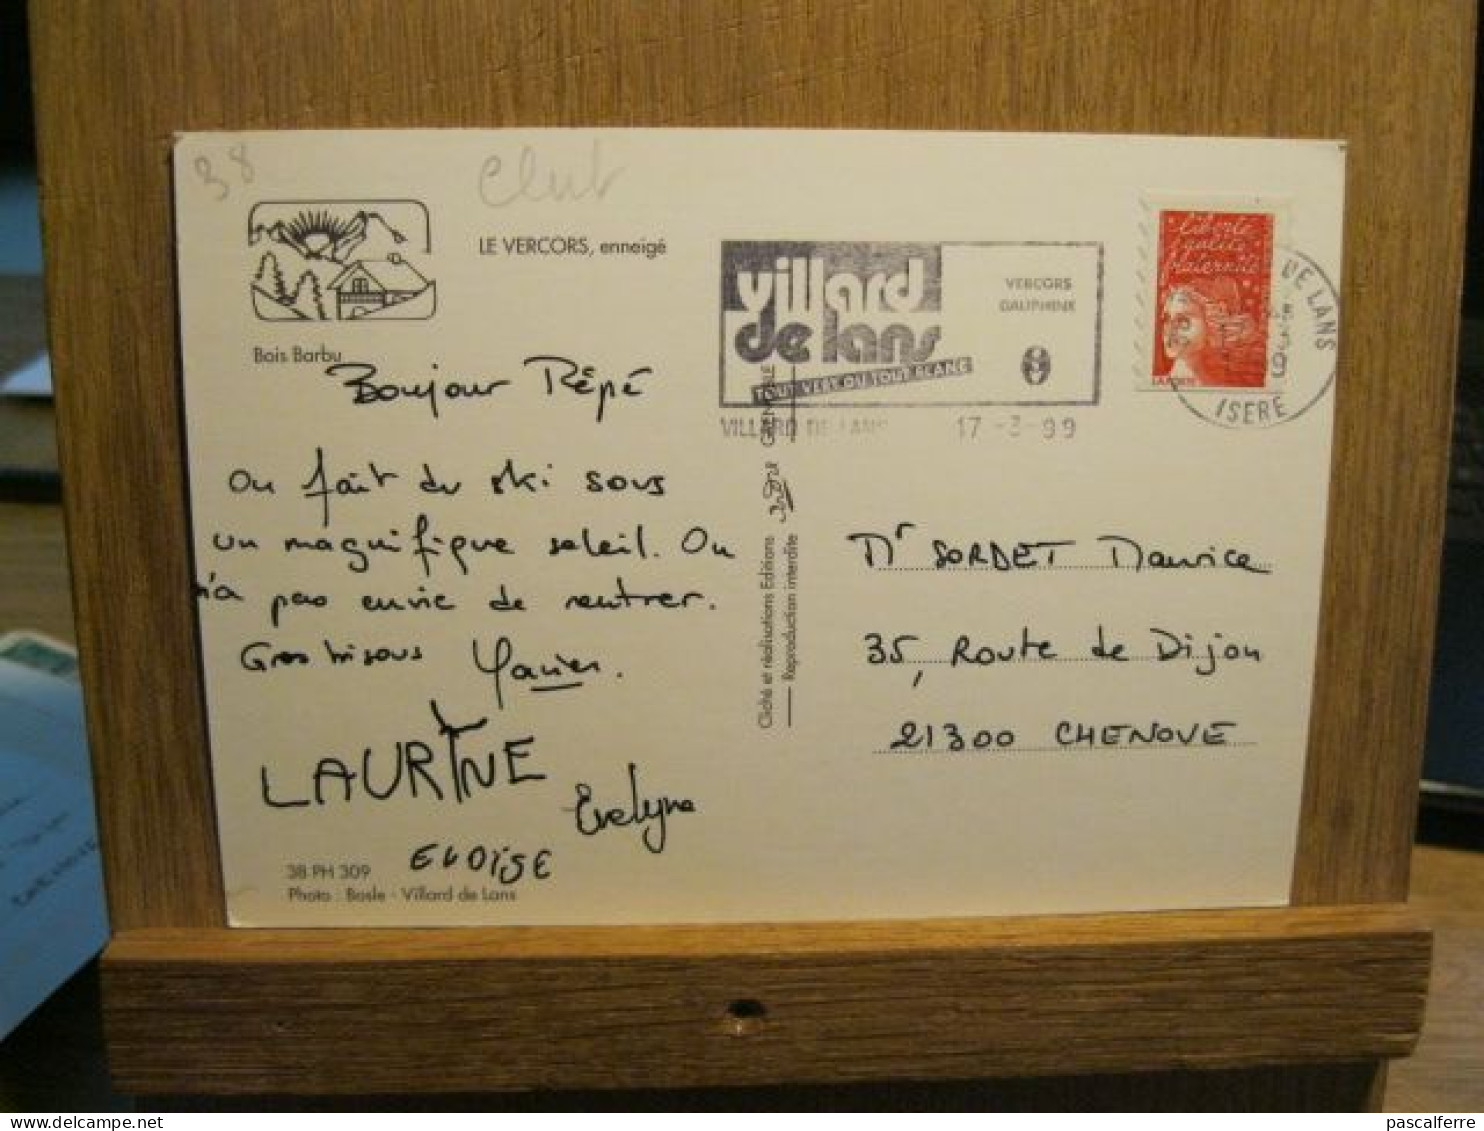 38
Club
LE VERCORS, enneigé
Bois Barbu
Bonjour Pépé
On fait du ski sous
un magnifique soleil. On
n'a pas envie de rentrer.
Gros bisous
LAURINE
Evelyne
ELOÏSE
38 PH 309
Photo : Basle - Villard de Lans
Cliché et réalisations Editions
GRENOBLE
Reproduction interdite
villard
de lans
TOUT VERT OU TOUT BLANC
VERCORS
DAUPHINE
VILLARD DE LANS 17-3-99
Liberté
égalité
fraternité
LA POSTE
DE LANS
ISERE
Mr SORDET Maurice
35, Route de Dijon
21300 CHENOVE
pascalferre